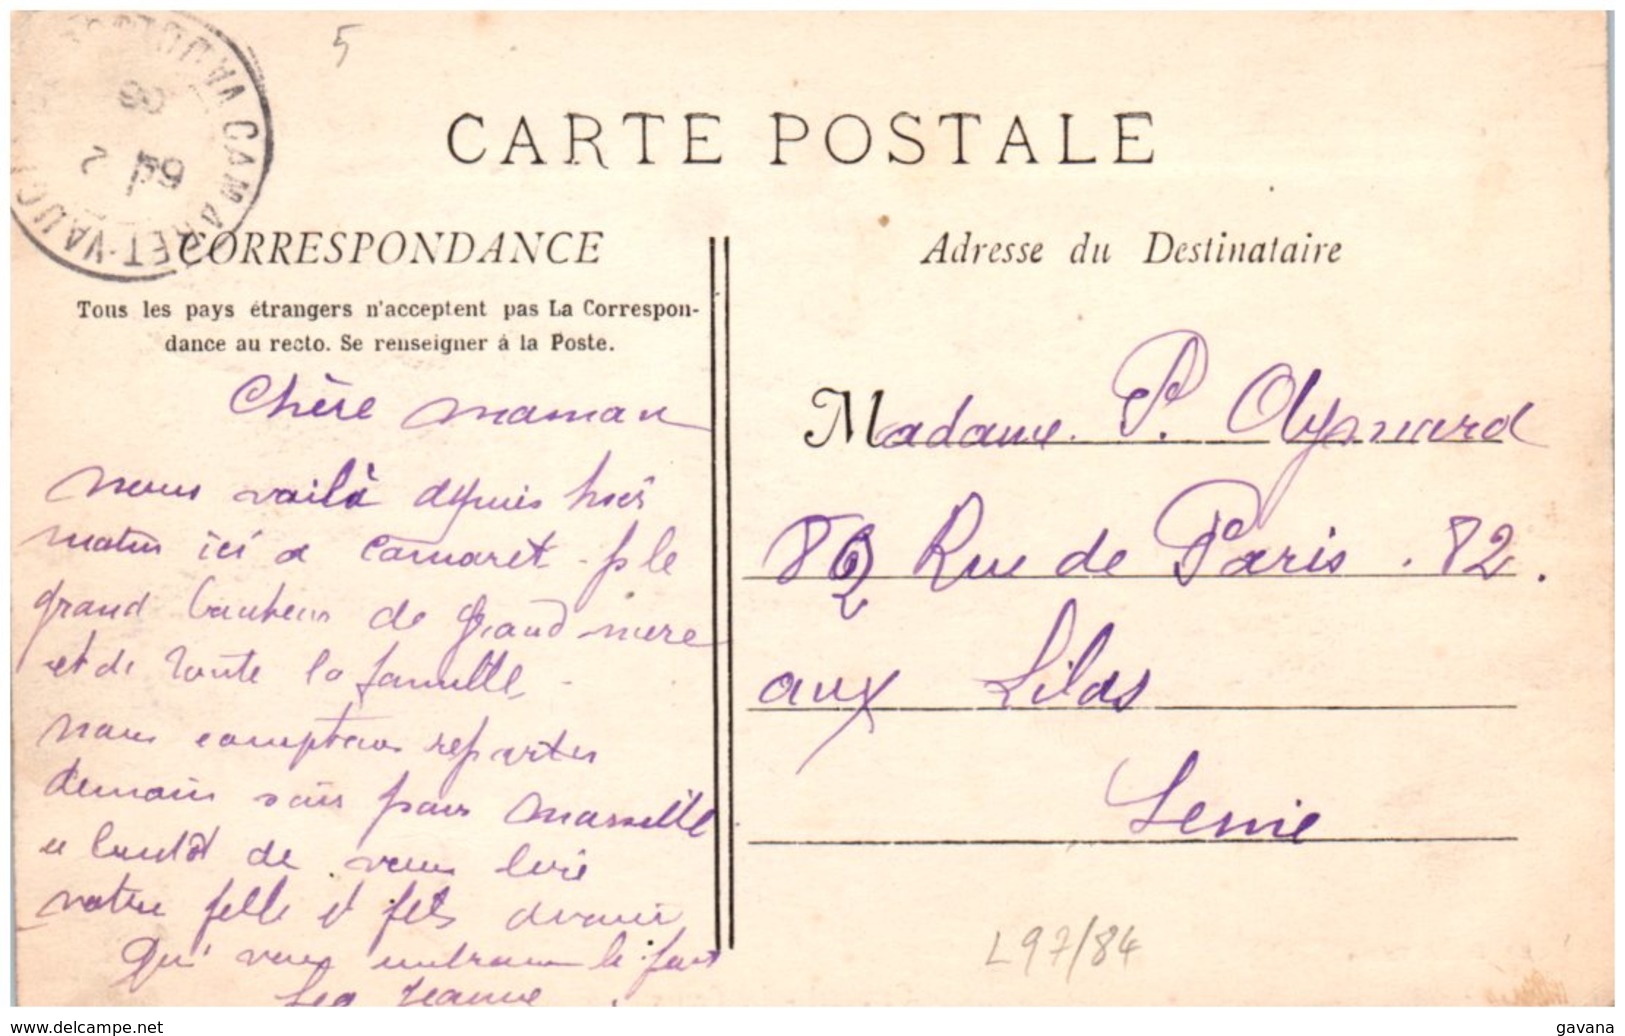 5
CAMARET-VAUCLUSE
CARTE POSTALE
CORRESPONDANCE
Tous les pays étrangers n'acceptent pas La Correspon-
dance au recto. Se renseigner à la Poste.
Chère maman
nous voilà depuis hier
matin ici a Camaret p le
grand bonheur de grand mere
et de toute la famille
nous comptons repartir
demain soir pour Marseille
a bientôt de vous lire
votre fille et fils
Qu' vous embrasse
Jeanne
Adresse du Destinataire
Madame P.
82 Rue de Paris . 82.
aux Lilas
Seine
L97/84
www.delcampe.net
gavana